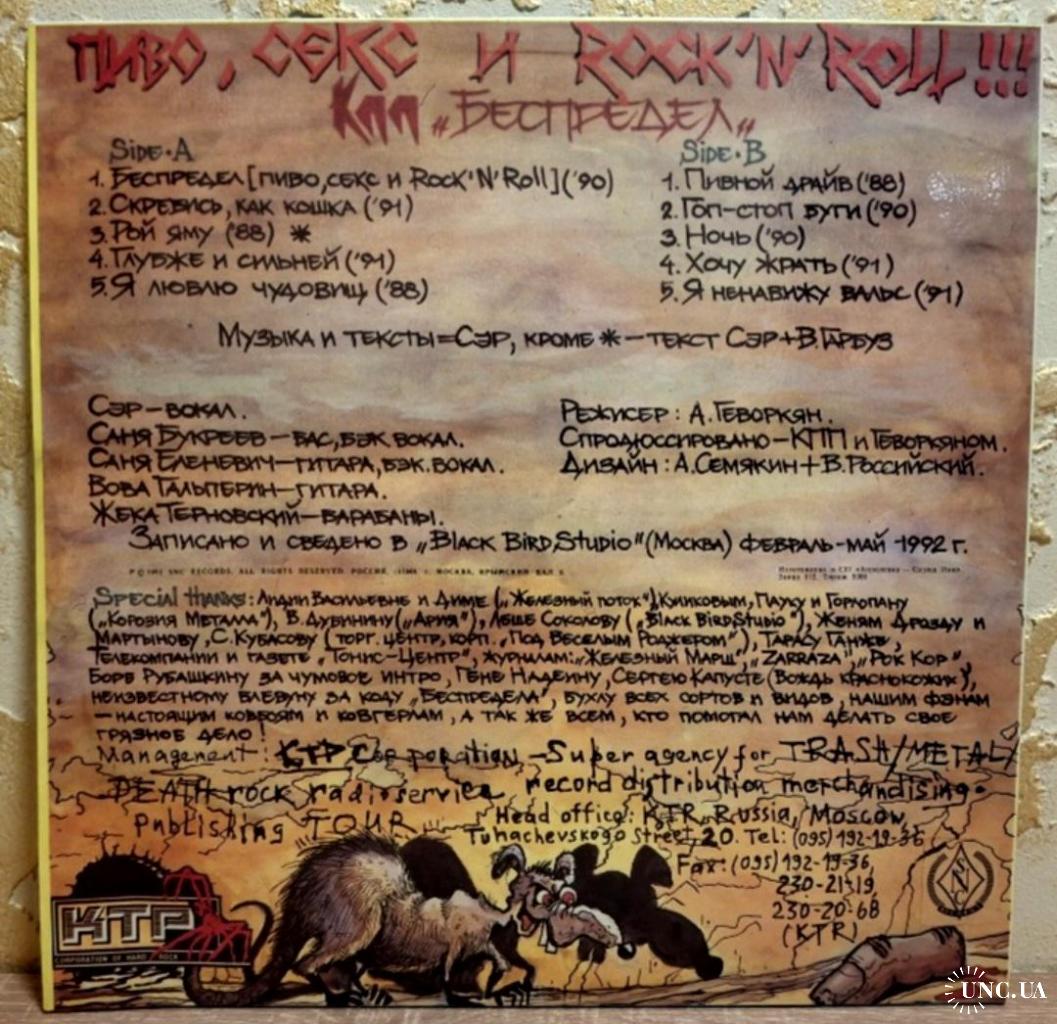 ПИВО, СЕКС И ROCK'N'ROLL!!!
КПП „БЕСПРЕДЕЛ„
Side·A
1. БЕСПРЕДЕЛ [ПИВО, СЕКС И Rock'N'Roll] ('90)
2. СКРЕБИСЬ, КАК КОШКА ('91)
3. РОЙ ЯМУ ('88) *
4. ГЛУБЖЕ И СИЛЬНЕЙ ('91)
5. Я ЛЮБЛЮ ЧУДОВИЩ ('88)
Side·B
1. ПИВНОЙ ДРАЙВ ('88)
2. ГОП-СТОП БУГИ ('90)
3. НОЧЬ ('90)
4. ХОЧУ ЖРАТЬ ('91)
5. Я НЕНАВИЖУ ВАЛЬС ('91)
МУЗЫКА И ТЕКСТЫ = СЭР, КРОМЕ * – ТЕКСТ СЭР + В. ГАРБУЗ
СЭР – ВОКАЛ.
САНЯ БУКРЕЕВ – БАС, БЭК ВОКАЛ.
САНЯ ЕЛЕНЕВИЧ – ГИТАРА, БЭК. ВОКАЛ.
ВОВА ГАЛЬПЕРИН – ГИТАРА.
ЖЕКА ТЕРНОВСКИЙ – БАРАБАНЫ.
РЕЖИСЕР: А. ГЕВОРКЯН.
СПРОДЮССИРОВАНО – КПП И ГЕВОРКЯНОМ.
ДИЗАЙН: А. СЕМЯКИН + В. РОССИЙСКИЙ.
ЗАПИСАНО И СВЕДЕНО В „BLACK BIRD STUDIO" (МОСКВА) ФЕВРАЛЬ-МАЙ 1992 Г.
SNC RECORDS. ALL RIGHTS RESERVED. РОССИЯ, МОСКВА, КРЫМСКИЙ ВАЛ
Special thanks: ЛИДИИ ВАСИЛЬЕВНЕ И ДИМЕ („ЖЕЛЕЗНЫЙ ПОТОК"), КУЛИКОВЫМ, ПАУКУ И ГОРЛОПАНУ
(„КОРОЗИЯ МЕТАЛЛА"), В. ДУБИНИНУ („АРИЯ"), ЛЕШЕ СОКОЛОВУ („BLACK BIRD STUDIO"), ЖЕНЯМ ДРОЗДУ И
МАРТЫНОВУ, С. КУБАСОВУ (ТОРГ. ЦЕНТР, КОРП. „ПОД ВЕСЕЛЫМ РОДЖЕРОМ"), ТАРАСУ ГАНЖЕ,
ТЕЛЕКОМПАНИИ И ГАЗЕТЕ „ТОНИС-ЦЕНТР", ЖУРНАЛАМ: „ЖЕЛЕЗНЫЙ МАРШ", „ZARRAZA", „РОК КОР",
БОРЕ РУБАШКИНУ ЗА ЧУМОВОЕ ИНТРО, ГЕНЕ НАДЕИНУ, СЕРГЕЮ КАПУСТЕ (ВОЖДЬ КРАСНОКОЖИХ),
НЕИЗВЕСТНОМУ БЛЕВУНУ ЗА КОДУ „БЕСПРЕДЕЛА", БУХЛУ ВСЕХ СОРТОВ И ВИДОВ, НАШИМ ФЭНАМ
– НАСТОЯЩИМ КОВБОЯМ И КОВГЕРЛАМ, А ТАК ЖЕ ВСЕМ, КТО ПОМОГАЛ НАМ ДЕЛАТЬ СВОЕ
ГРЯЗНОЕ ДЕЛО!
Management: KTP Corporation – Super agency for TRASH/METAL/
DEATH rock radioservice record distribution merchandising.
publishing TOUR
Head office: KTR, Russia, Moscow,
Tuhachevskogo Street, 20. Tel: (095) 192-19-36
Fax: (095) 192-19-36,
230-21-19,
230-20-68
(KTR)
KTP
CORPORATION OF HARD ROCK
UNC.UA